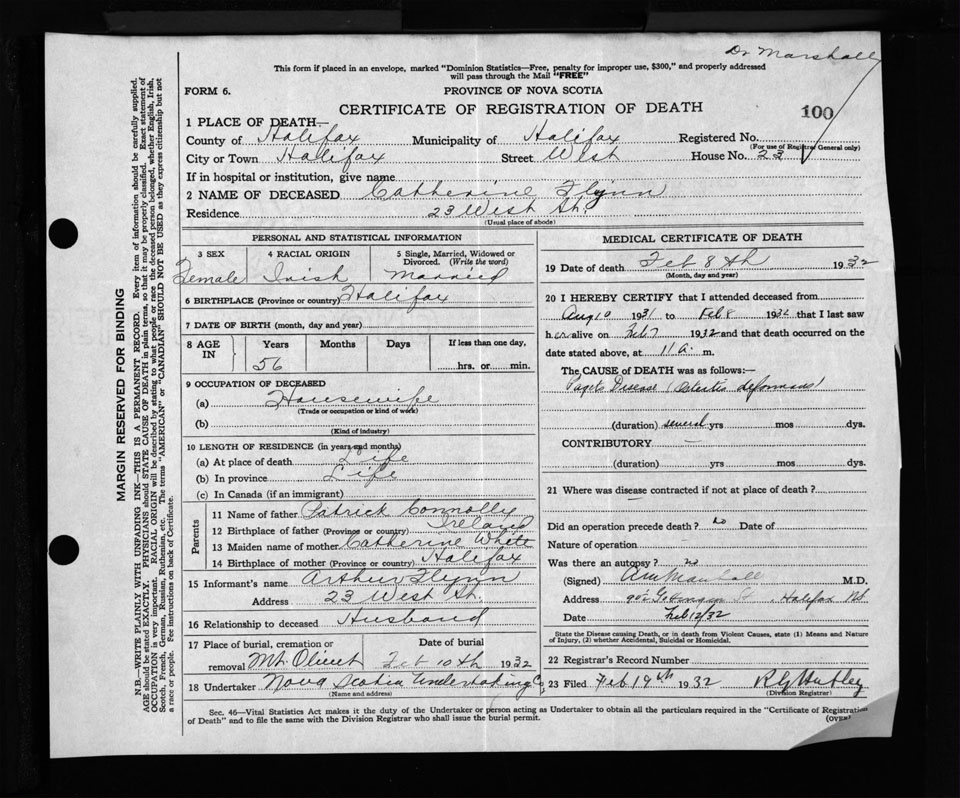 Dr Marshall
This form if placed in an envelope, marked "Dominion Statistics—Free, penalty for improper use, $300," and properly addressed
will pass through the Mail "FREE"
FORM 6.
PROVINCE OF NOVA SCOTIA
CERTIFICATE OF REGISTRATION OF DEATH
100
1 PLACE OF DEATH—
County of Halifax Municipality of Halifax Registered No.
(For use of Registrar General only)
City or Town Halifax Street West House No. 23
If in hospital or institution, give name
2 NAME OF DECEASED Catherine Flynn
Residence 23 West St.
(Usual place of abode)
PERSONAL AND STATISTICAL INFORMATION
3 SEX 4 RACIAL ORIGIN 5 Single, Married, Widowed or
Divorced. (Write the word)
Female Irish Married
6 BIRTHPLACE (Province or country) Halifax
7 DATE OF BIRTH (month, day and year)
8 AGE IN Years Months Days If less than one day,
56 hrs. or min.
9 OCCUPATION OF DECEASED
(a) Housewife
(Trade or occupation or kind of work)
(b)
(Kind of industry)
10 LENGTH OF RESIDENCE (in years and months)
(a) At place of death Life
(b) In province Life
(c) In Canada (if an immigrant)
Parents
11 Name of father Patrick Connolly
12 Birthplace of father (Province or country) Ireland
13 Maiden name of mother Catherine White
14 Birthplace of mother (Province or country) Halifax
15 Informant's name Arthur Flynn
Address 23 West St.
16 Relationship to deceased Husband
17 Place of burial, cremation or Date of burial
removal Mt. Olivet Feb 10th 1932
18 Undertaker Nova Scotia Undertaking Co.
(Name and address)
MEDICAL CERTIFICATE OF DEATH
19 Date of death Feb 8th 1932
(Month, day and year)
20 I HEREBY CERTIFY that I attended deceased from
Aug 10 1931 to Feb 8 1932 that I last saw
her alive on Feb 7 1932 and that death occurred on the
date stated above, at 11 a. m.
The CAUSE of DEATH was as follows:—
Pagets Disease (Osteitis deformans)
(duration) several yrs mos dys.
CONTRIBUTORY —
(duration) yrs mos dys.
21 Where was disease contracted if not at place of death?
Did an operation precede death? no Date of
Nature of operation
Was there an autopsy? no
(Signed) Marshall M.D.
Address Halifax
Date Feb 12/32
State the Disease causing Death, or in death from Violent Causes, state (1) Means and Nature
of Injury, (2) whether Accidental, Suicidal or Homicidal.
22 Registrar's Record Number
23 Filed Feb 19th 1932
(Division Registrar)
Sec. 46—Vital Statistics Act makes it the duty of the Undertaker or person acting as Undertaker to obtain all the particulars required in the "Certificate of Registration
of Death" and to file the same with the Division Registrar who shall issue the burial permit.
(OVER)
MARGIN RESERVED FOR BINDING
N.B.—WRITE PLAINLY WITH UNFADING INK—THIS IS A PERMANENT RECORD. Every item of information should be carefully supplied.
AGE should be stated EXACTLY. PHYSICIANS should STATE CAUSE OF DEATH in plain terms, so that it may be properly classified. Exact statement of
OCCUPATION is very important. RACIAL ORIGIN will be described by stating to what people or race the deceased person belonged, whether English, Irish,
Scotch, French, German, Russian, Ruthenian, etc. The terms "AMERICAN" or "CANADIAN" SHOULD NOT BE USED as they express citizenship but not
a race or people. See instructions on back of Certificate.